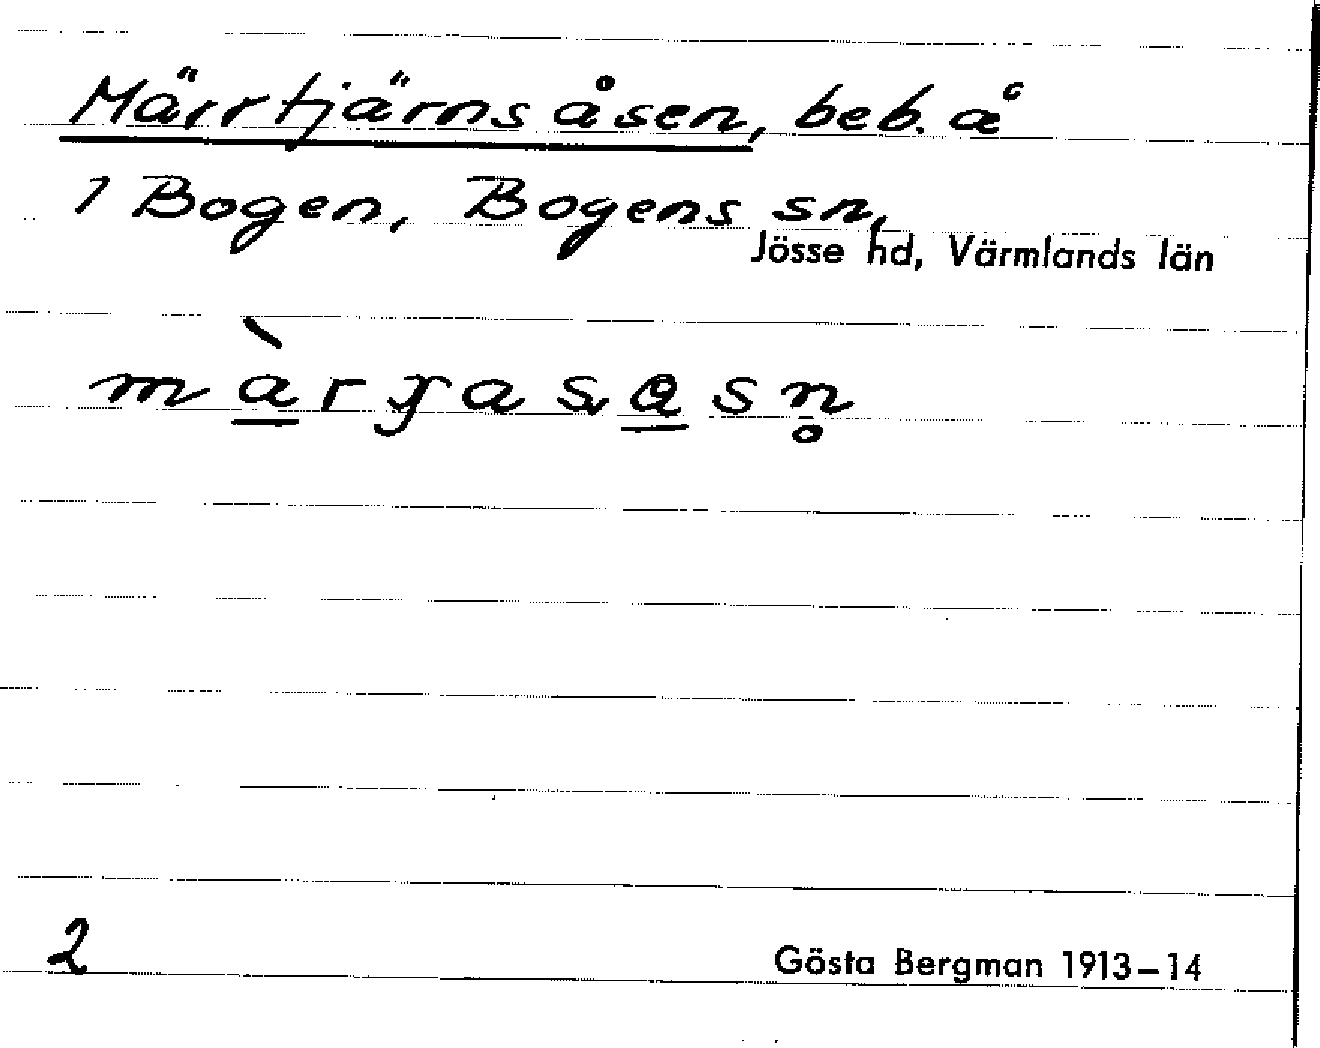 Märrtjärnsåsen, beb. å
1 Bogen, Bogens sn,
Jösse hd, Värmlands län
2
Gösta Bergman 1913–14